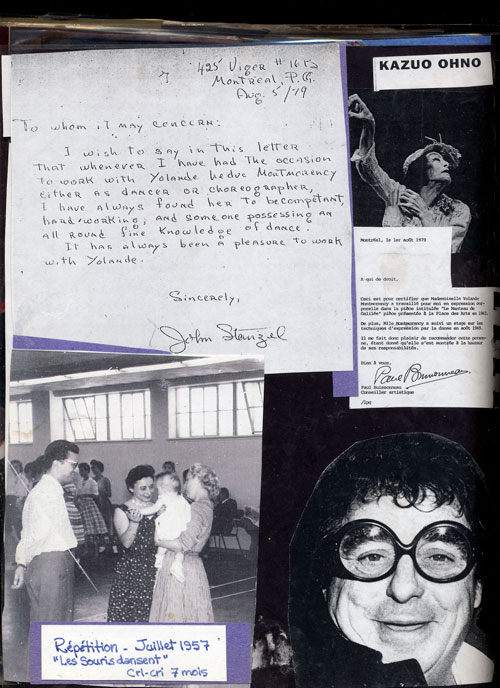 425 Viger # 1612
Montreal, P.Q.
Aug. 5/79
To whom it may concern:
I wish to say in this letter
that whenever I have had the occasion
to work with Yolande Leduc Montmorency
either as dancer or choreographer,
I have always found her to be competant,
hard-working, and someone possessing an
all round fine knowledge of dance.
It has always been a pleasure to work
with Yolande.
Sincerely,
John Stanzel
KAZUO OHNO
Montréal, le 1er août 1979
A qui de droit,
Ceci est pour certifier que Mademoiselle Yolande
Montmorency a travaillé pour moi en expression cor-
porelle dans la pièce intitulée "Le Manteau de
Galilée" pièce présentée à la Place des Arts en
De plus, Mlle Montmorency a suivi un stage sur les
techniques d'expression par la danse en août 1969.
Il me fait donc plaisir de recommander cette person-
ne, étant donné qu'elle s'est montrée à la hauteur
de ses responsabilités.
Bien à vous,
Paul Buissonneau
Paul Buissonneau
Conseiller artistique
Répétition - Juillet 1957
"Les Souris dansent"
Cri-cri 7 mois